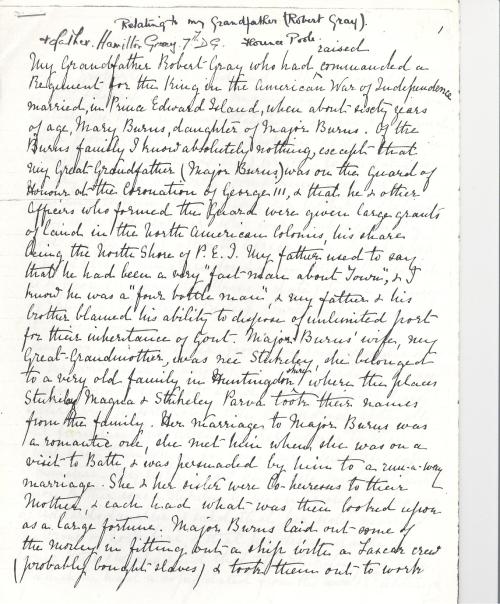 Relating to my Grandfather (Robert Gray).
& father. Hamilton Gray. 7th D.G. Florence Poole.
1
raised
My Grandfather Robert Gray who had commanded a
Regiment for the King in the American War of Independence
married, in Prince Edward Island, when about sixty years
of age, Mary Burns, daughter of Major Burns. Of the
Burns family I know absolutely nothing, except that
my Great-Grandfather (Major Burns) was on the Guard of
Honour at the Coronation of George III, & that he & other
Officers who formed the Guard were given large grants
of land in the North American Colonies, his share
being the North Shore of P.E.I. My father used to say
that he had been a very "fast man about Town", & I
know he was a "four bottle man", & my father & his
brother blamed his ability to dispose of unlimited port
for their inheritance of Gout. Major Burns' wife, my
Great-Grandmother, was née Stukeley, she belonged
to a very old family in Huntingdonshire, where the places
Stukeley Magna & Stukeley Parva took their names
from the family. Her marriage to Major Burns was
a romantic one, she met him when she was on a
visit to Bath, & was persuaded by him to a run-a-way
marriage. She & her sister were Co-heiresses to their
Mother, & each had what was then looked upon
as a large fortune. Major Burns laid out some of
the money in fitting out a ship with a Lascar crew
(probably bought slaves) & took them out to work